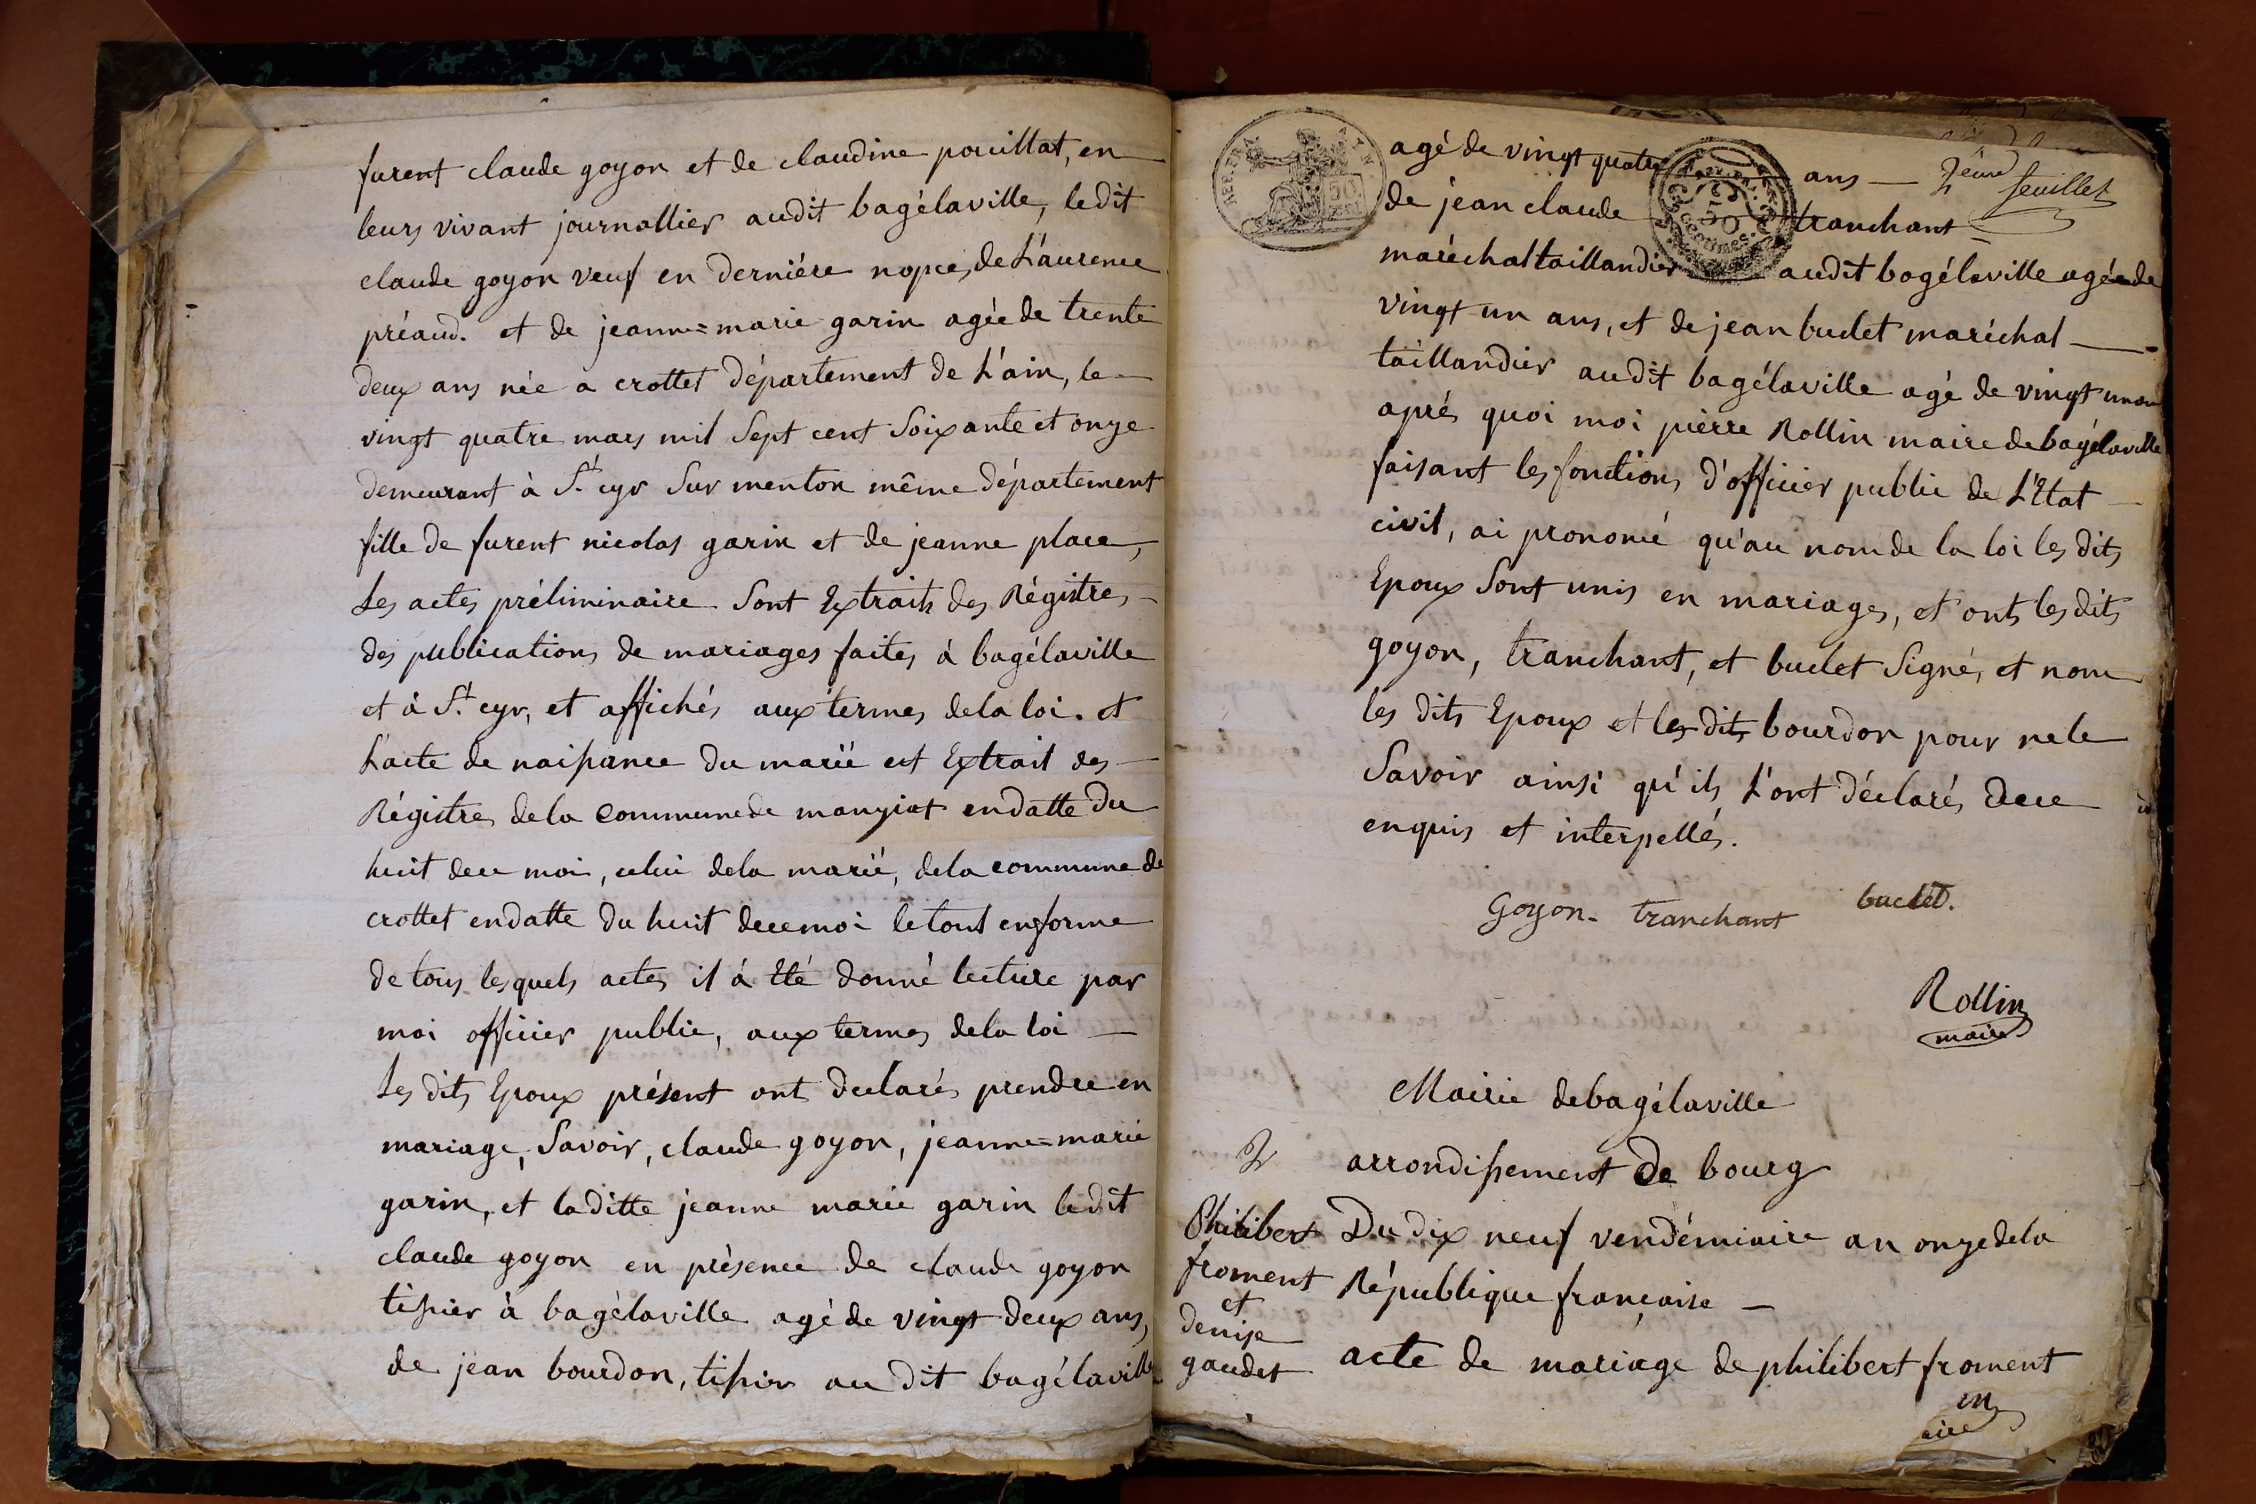 furent claude goyon et de claudine pouillat, en
leurs vivant journallier audit bagélaville, ledit
claude goyon veuf en derniére nopces de L'aurence
préaud. et de jeanne=marie garin agée de trente
deux ans née a crottet département de L'ain, le
vingt quatre mars mil Sept cent Soixante et onze
demeurant à St. cyr Sur menton même département
fille de furent nicolas garin et de jeanne place,
Les actes préliminaire Sont Extraits des Régistres
des publications de mariages faites à bagélaville
et à St. cyr, et affichés aux termes de la loi. et
L'acte de naissance du marié est Extrait des
Régistres de la commune de manziat en datte du
huit de ce moi, celui de la marié, de la commune de
crottet en datte du huit de ce moi le tout en forme
de tous lesquels actes il à Eté donné lecture par
moi officier public, aux termes de la loi
Les dits Epoux présent ont declarés prendre en
mariage, Savoir, claude goyon, jeanne=marie
garin, et laditte jeanne marie garin ledit
claude goyon en présence de claude goyon
tissier à bagélaville agé de vingt deux ans,
de jean bourdon, tissier au dit bagélaville
agé de vingt quatre ans
2eme feuillet
de jean claude tranchant
maréchal taillandier audit bagélaville agé de
vingt un ans, et de jean buclet maréchal
taillandier audit bagélaville agé de vingt un an
aprés quoi moi pierre Rollin maire de bagélaville
faisant les fonctions d'officier public de L'Etat
civil, ai prononcé qu'au nom de la loi les dits
Epoux Sont unis en mariages, et ont les dits
goyon, tranchant, et buclet Signé, et non
les dits Epoux et les dits bourdon pour ne le
Savoir ainsi qu'ils L'ont déclarés de ce
enquis et interpellés.
Goyon. tranchant buclet.
Rollin
maire
Mairie de bagélaville
2
arrondissement de bourg
Philibert
froment
et
denise
gaudet
Du dix neuf vendémiaire an onze de la
République française
acte de mariage de philibert froment